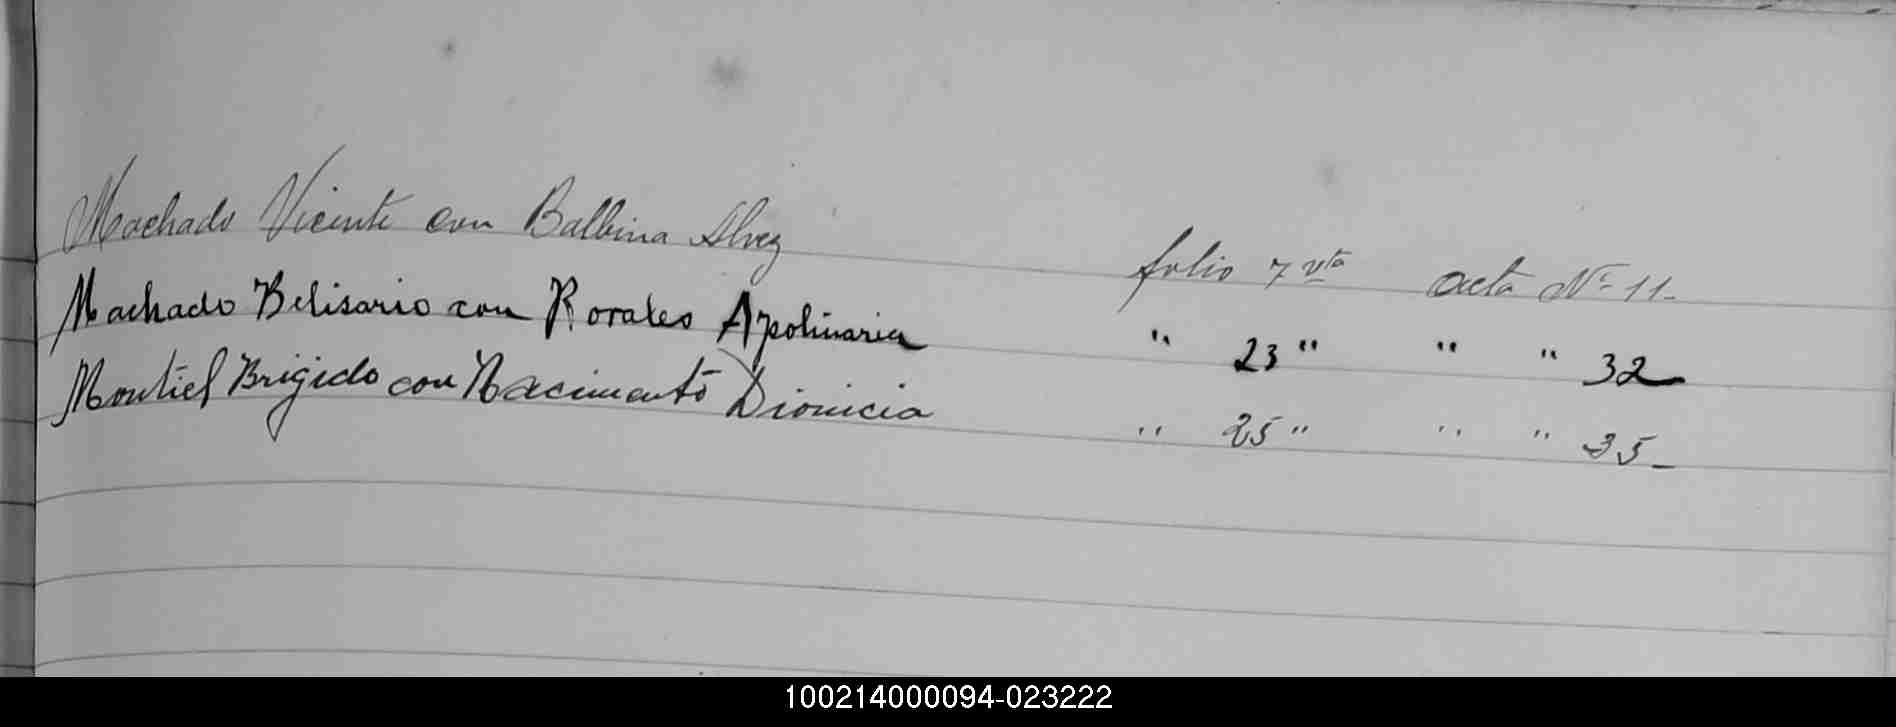 Machado Vicente con Balbina Alvez folio 7 vta acta Nº 11-
Machado Belisario con Rorales Apolinaria " 23 " " " 32
Montiel Brigido con Nacimento Dionicia " 25 " " " 35-
100214000094-023222